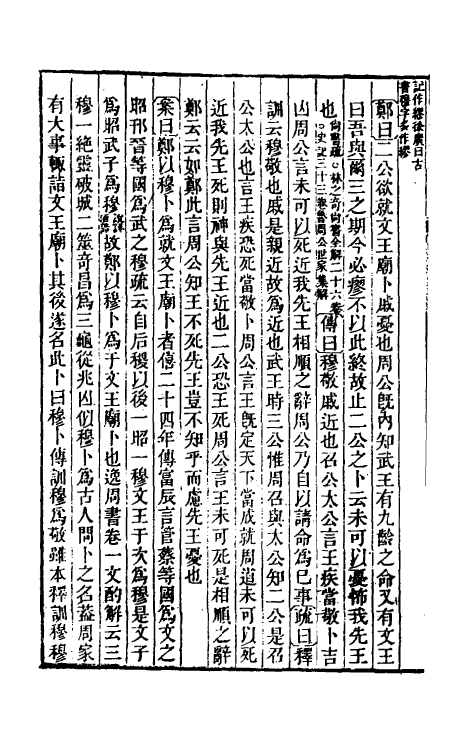 記作繆徐廣曰古
書穆字多作繆
鄭曰二公欲就文王廟卜戚憂也周公旣內知武王有九齡之命又有文王
曰吾與爾三之期今必瘳不以此終故止二公之卜云未可以憂怖我先王
也尙書疏○林之奇尙書全解二十六卷○史記三十三卷魯周公世家集解傳曰穆敬戚近也召公太公言王疾當敬卜吉
凶周公言未可以死近我先王相順之辭周公乃自以請命爲己事疏曰釋
訓云穆敬也戚是親近故爲近也武王時三公惟周召與太公知二公是召
公太公也言王疾恐死當敬卜周公言王旣定天下當成就周道未可以死
近我先王死則神與先王近也二公恐王死周公言王未可死是相順之辭
鄭云云如鄭此言周公知王不死先王豈不知乎而慮先王憂也
案曰鄭以穆卜爲就文王廟卜者僖二十四年傳富辰言管蔡等國爲文之
昭邘晉等國爲武之穆疏云自后稷以後一昭一穆文王于次爲穆是文子
爲昭武子爲穆故鄭以穆卜爲于文王廟卜也逸周書卷一文酌解云三
穆一絕靈破城二筮奇昌爲三龜從兆凶似穆卜爲古人問卜之名葢周家
有大事輒詣文王廟卜其後遂名此卜曰穆卜傳訓穆爲敬雖本釋訓穆穆